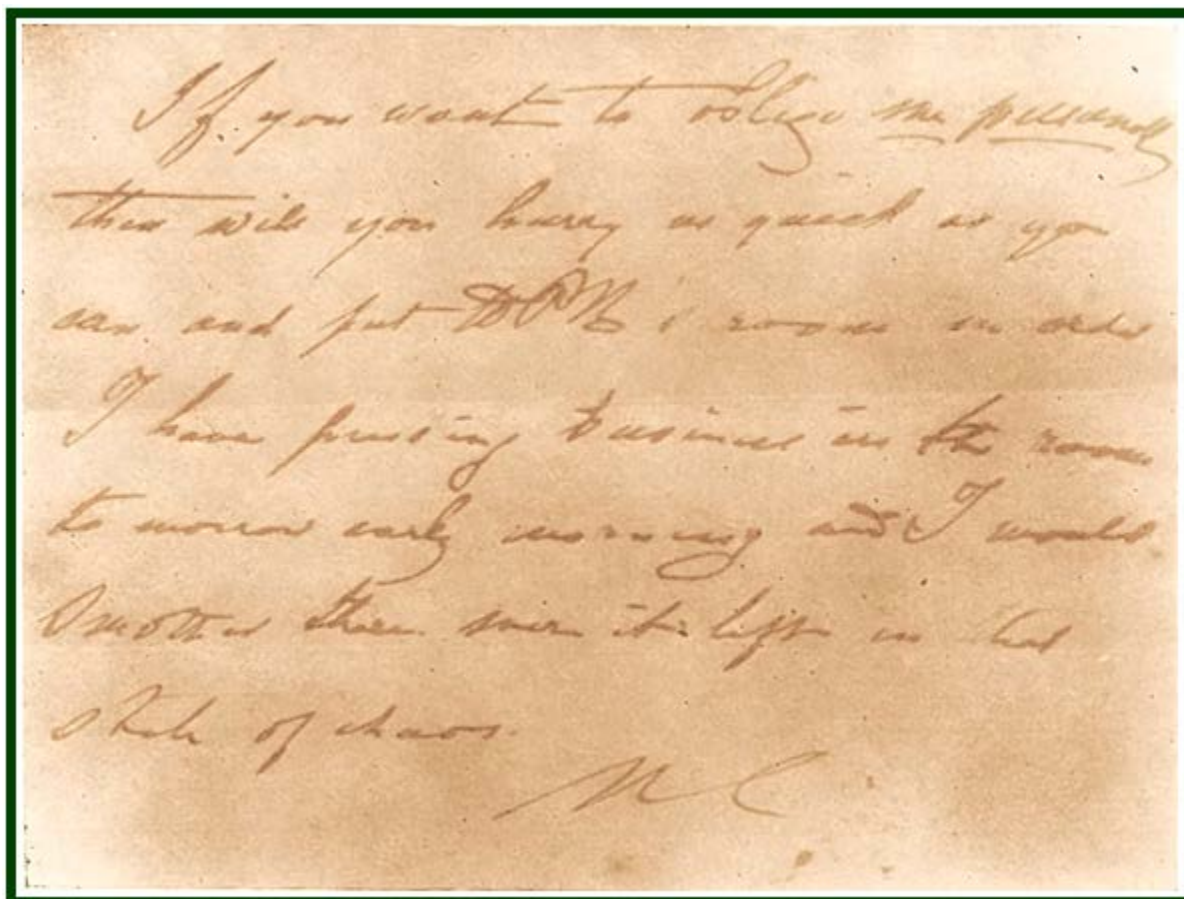 If you want to oblige me personally
then will you hurry as quick as you
can and put HPB's room in order
I have pressing business in the room
to morrow early morning and I would
smother there were it left in that
state of chaos.